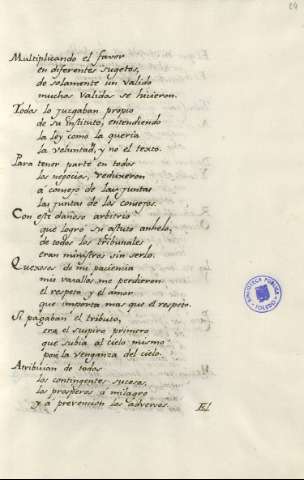 Multiplicando el favor
en diferentes sugetos,
de solamente un valido
muchos validos se hicieron.
Todos lo juzgaban propio
de su instituto, entendiendo
la ley como la queria
la voluntad, y no el texto.
Para tener parte en todos
los negocios, reduxeron
á consejo de las juntas
las juntas de los consejos.
Con este dañoso arbitrio
que logró su astuto anhelo,
de todos los tribunales
eran ministros sin serlo.
Quexosos de mi paciencia
mis vasallos, me perdieron
el respeto, y el amor
que importa mas que el respeto.
Si pagaban el tributo,
era el suspiro primero
que subia al cielo mismo
por la venganza del cielo.
Atribuian de todos
los contingentes sucesos,
los prosperos á milagro
y á prevencion los adversos.
El
BIBLIOTECA PÚBLICA
TOLEDO